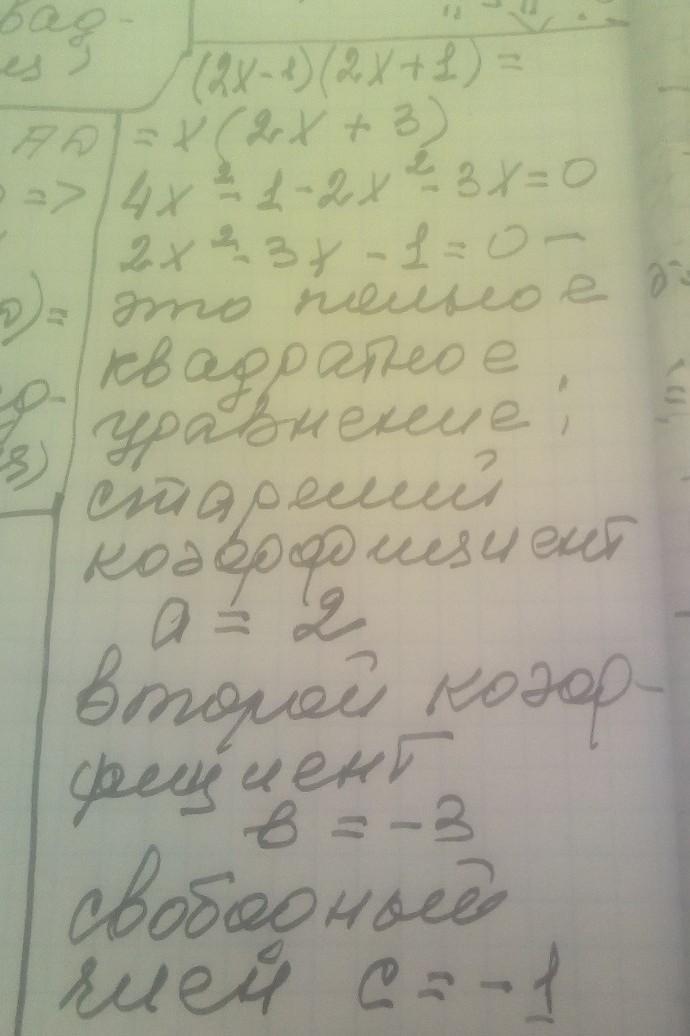 (2x-1)(2x+1) =
= x(2x + 3)
4x² - 1 - 2x² - 3x = 0
2x² - 3x - 1 = 0 -
это полное
квадратное
уравнение;
старший
коэффициент
a = 2
второй коэф-
фициент
в = -3
свободный
член c = -1
AD
=>